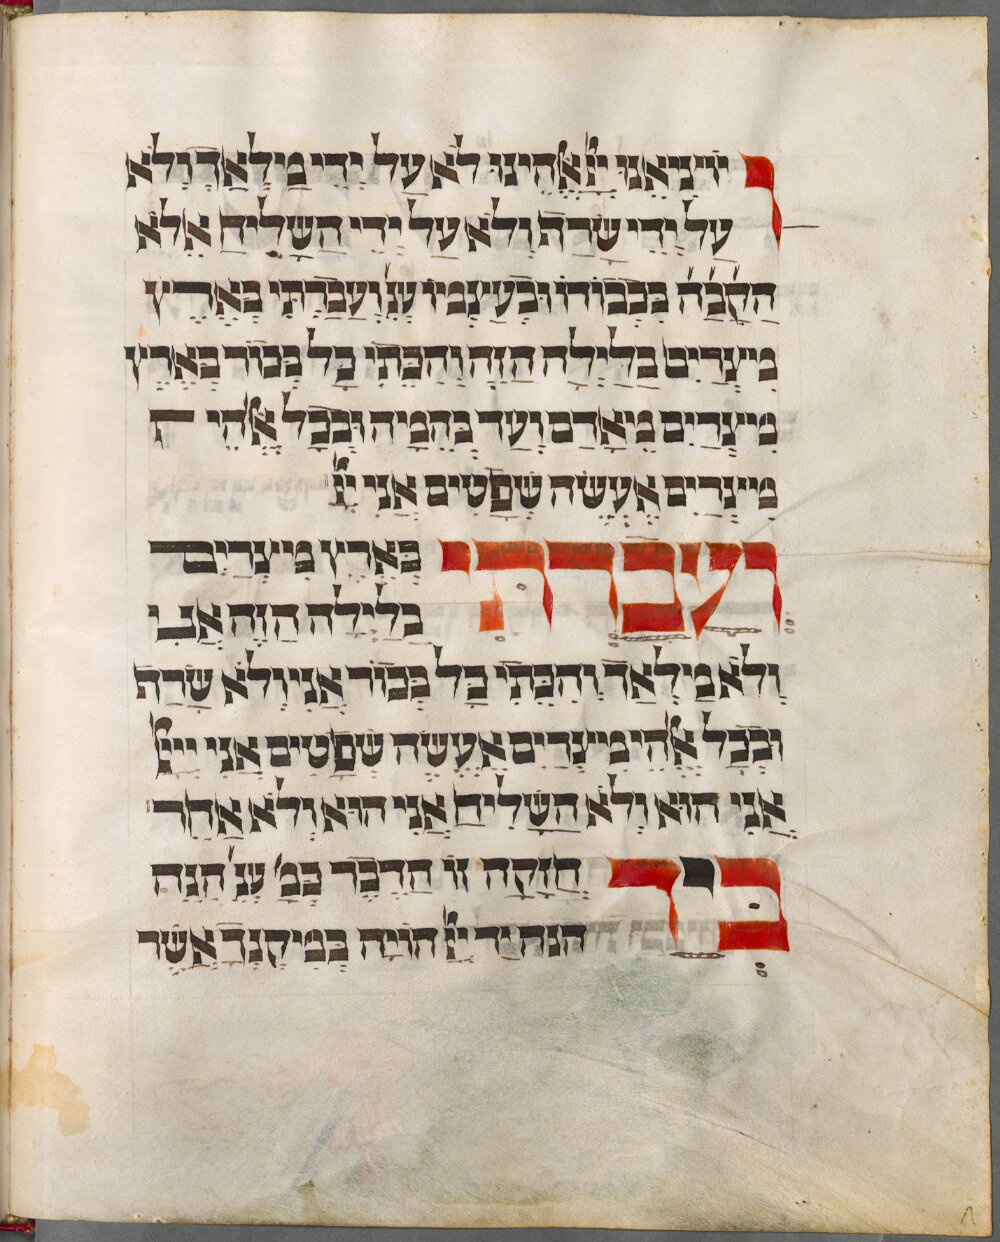 ויוציאנו ייָ אלהינו לא על ידי מלאך ולא
על ידי שרף ולא על ידי השליח אלא
הקבה בכבודו ובעצמו שנ ועברתי בארץ
מצרים בלילה הזה והכתי כל בכור בארץ
מצרים מאדם ועד בהמה ובכל אלהי
מצרים אעשה שפטים אני ייָ
ועברתי בארץ מצרים
בלילה הזה אני
ולא מלאך והכתי כל בכור אני ולא שרף
ובכל אלהי מצרים אעשה שפטים אני ייָ
אני הוא ולא השליח אני הוא ולא אחר
ביד חזקה זו הדבר כמ׳ שנ׳ הנה
הנה יד ייָ הויה במקנך אשר